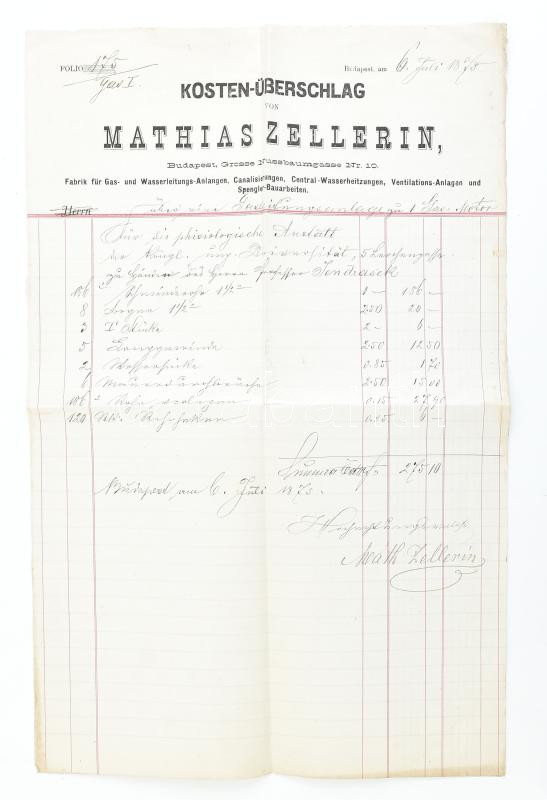 FOLIO 175
Budapest, am 6. Juli 1875
Gas I.
KOSTEN-ÜBERSCHLAG
VON
MATHIAS ZELLERIN,
Budapest, Grosse Nussbaumgasse Nr. 10.
Fabrik für Gas- und Wasserleitungs-Anlangen, Canalisirungen, Central-Wasserheitzungen, Ventilations-Anlagen und
Spengler-Bauarbeiten.
Herrn über eine Gasleitungsanlage zu 1 Gas-Motor
Für die phisiologische Anstalt
der Königl. ung. Universität,
zu Händen des Herrn Professor Jendrasek
186 1½" 1 — 186 —
8 Bogen 1½" 2.50 20 —
3 T Stücke 2 — 6 —
5 Langgewinde 2.50 12.50
2 0.85 1.70
6 Mauerdurchbrüche 2.50 15.00
186 Rohr verlegen 0.15 27.90
120 Stk. Rohrhaken 0.05 6 —
Summa 275.10
Budapest am 6. Juli 1875.
Hochachtungsvoll
Math Zellerin